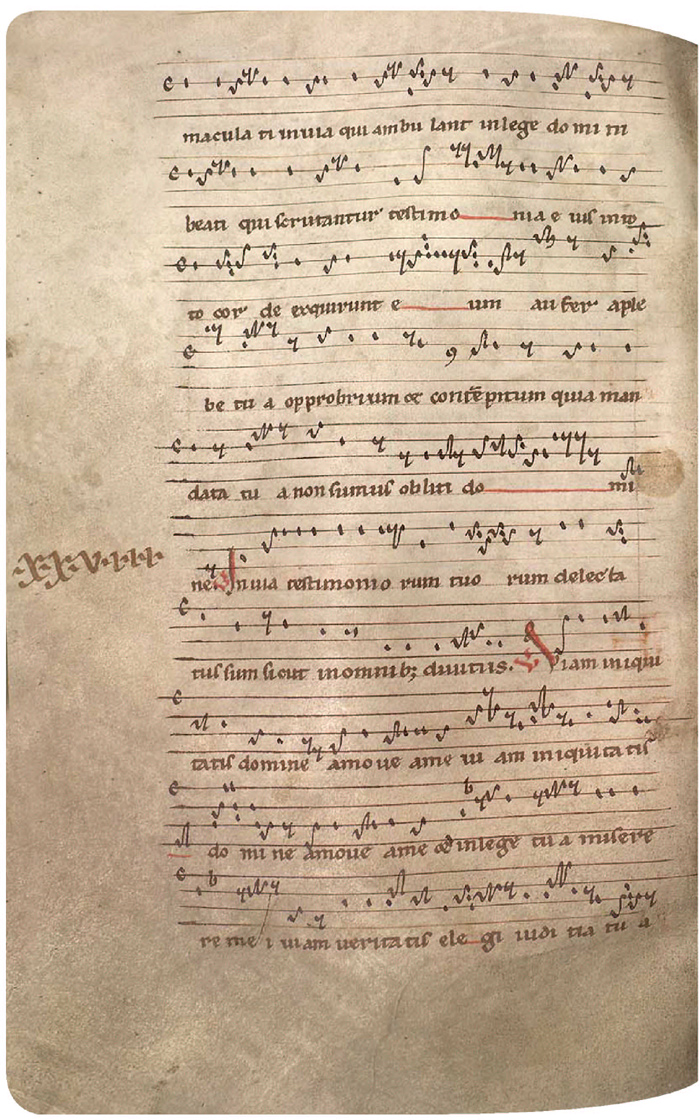 macula ti inuia qui ambu lant inlege do mi ni
beati qui scrutantur testimo nia e ius in to
to cor de exquirunt e um au fer a ple
be tu a opprobrium & contēptum quia man
data tu a non sumus obliti do mi
xxviii
ne ℣ Inuia testimonio rum tuo rum delecta
tus sum sicut inomnib; diuitiis. ℟ Viam iniqui
tatis domine amoue ame ui am iniquita tis
do mi ne amoue ame & inlege tu a misere
re me i uiam ueritatis ele gi iudi tia tu a